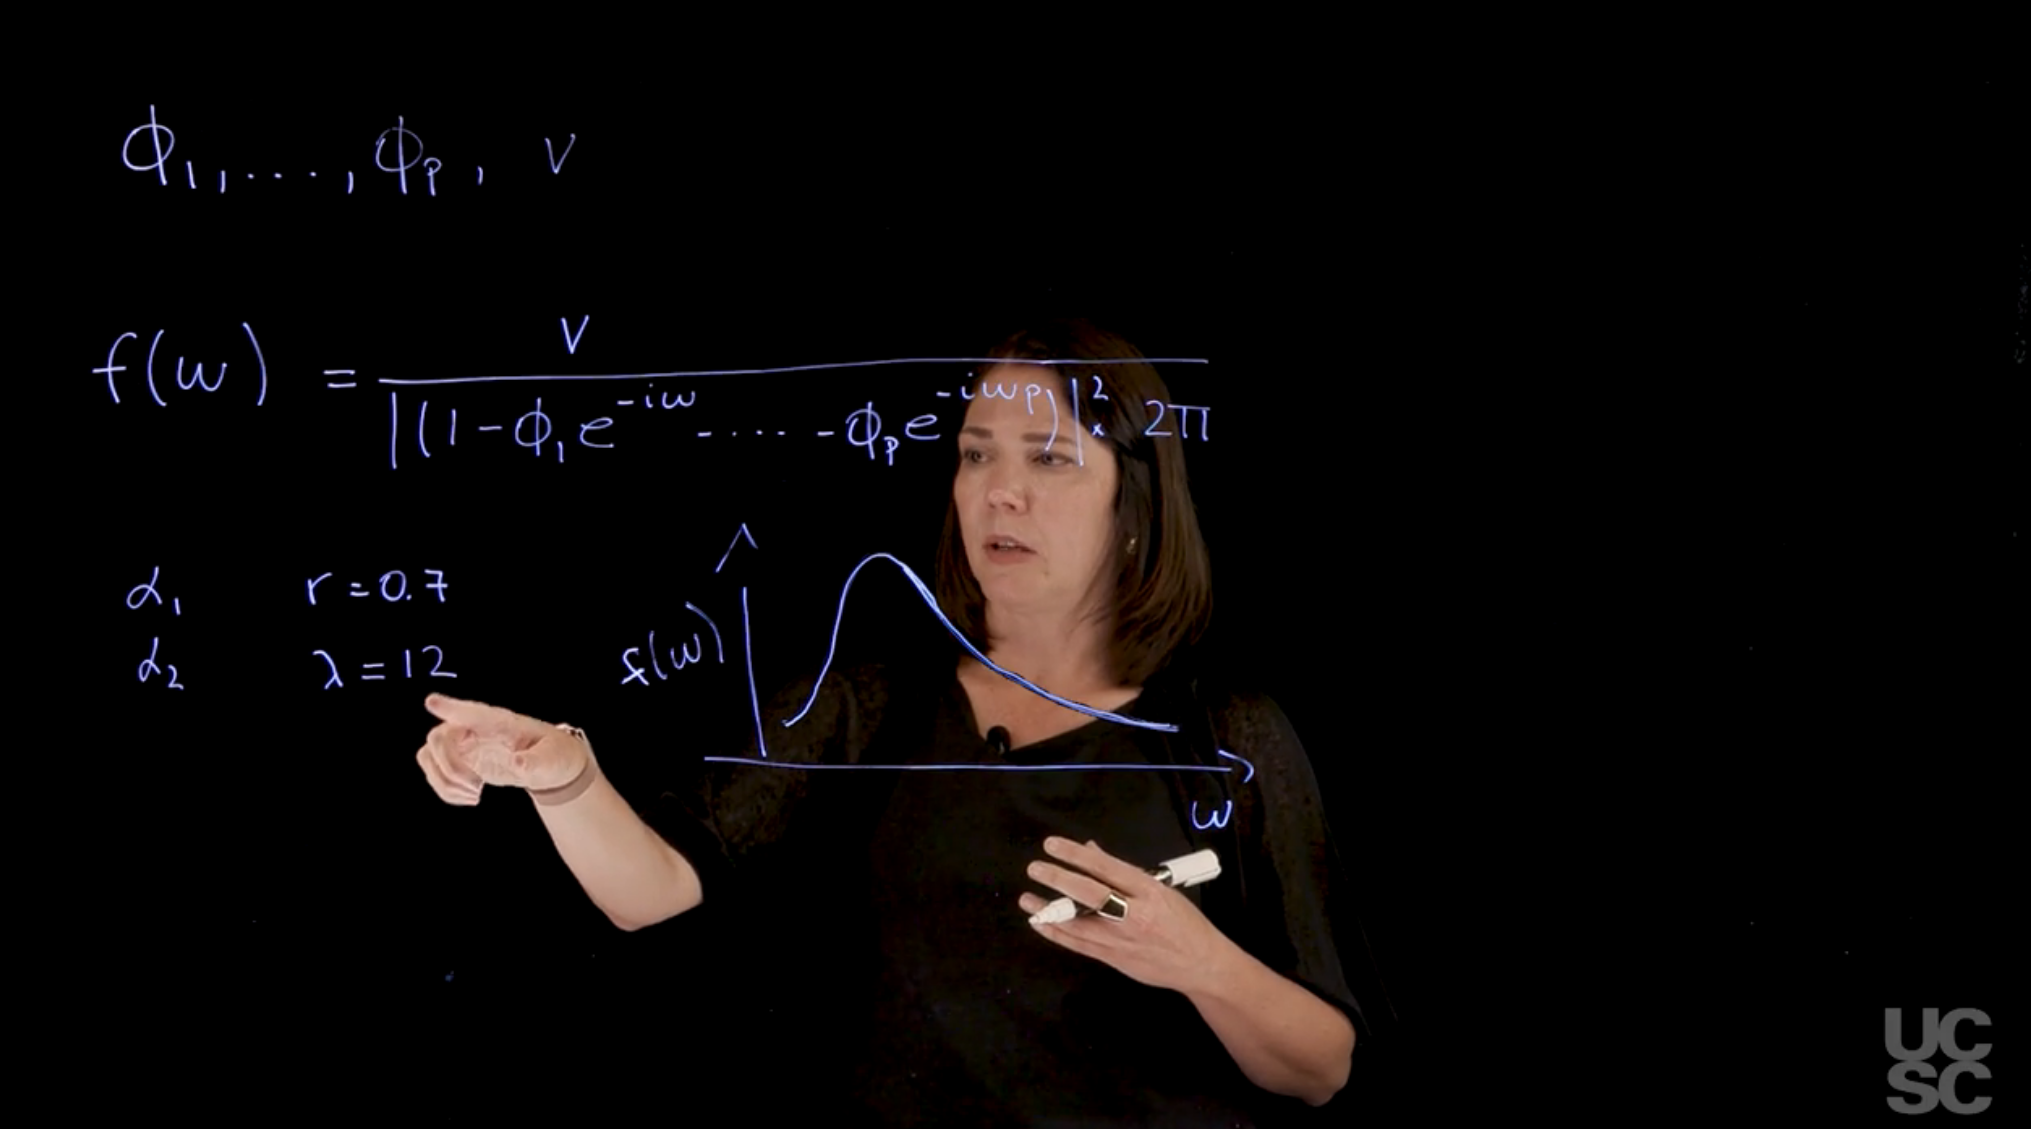 ϕ₁, ...., ϕₚ, v
f(w) = v / |(1 - ϕ₁e^{-iw} - .... - ϕₚe^{-iwp})|² · 2π
α₁ r = 0.7
α₂ λ = 12
f(w)
w
UC
SC